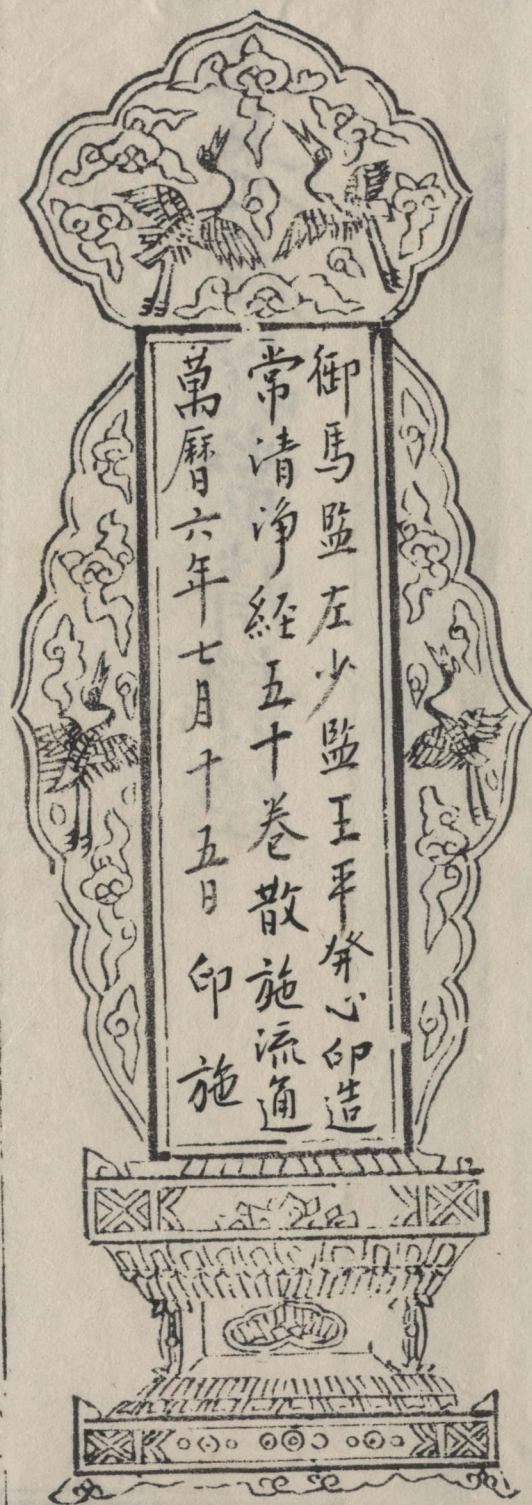 御馬監左少監王平發心印造
常清淨經五十卷散施流通
萬曆六年七月十五日印施